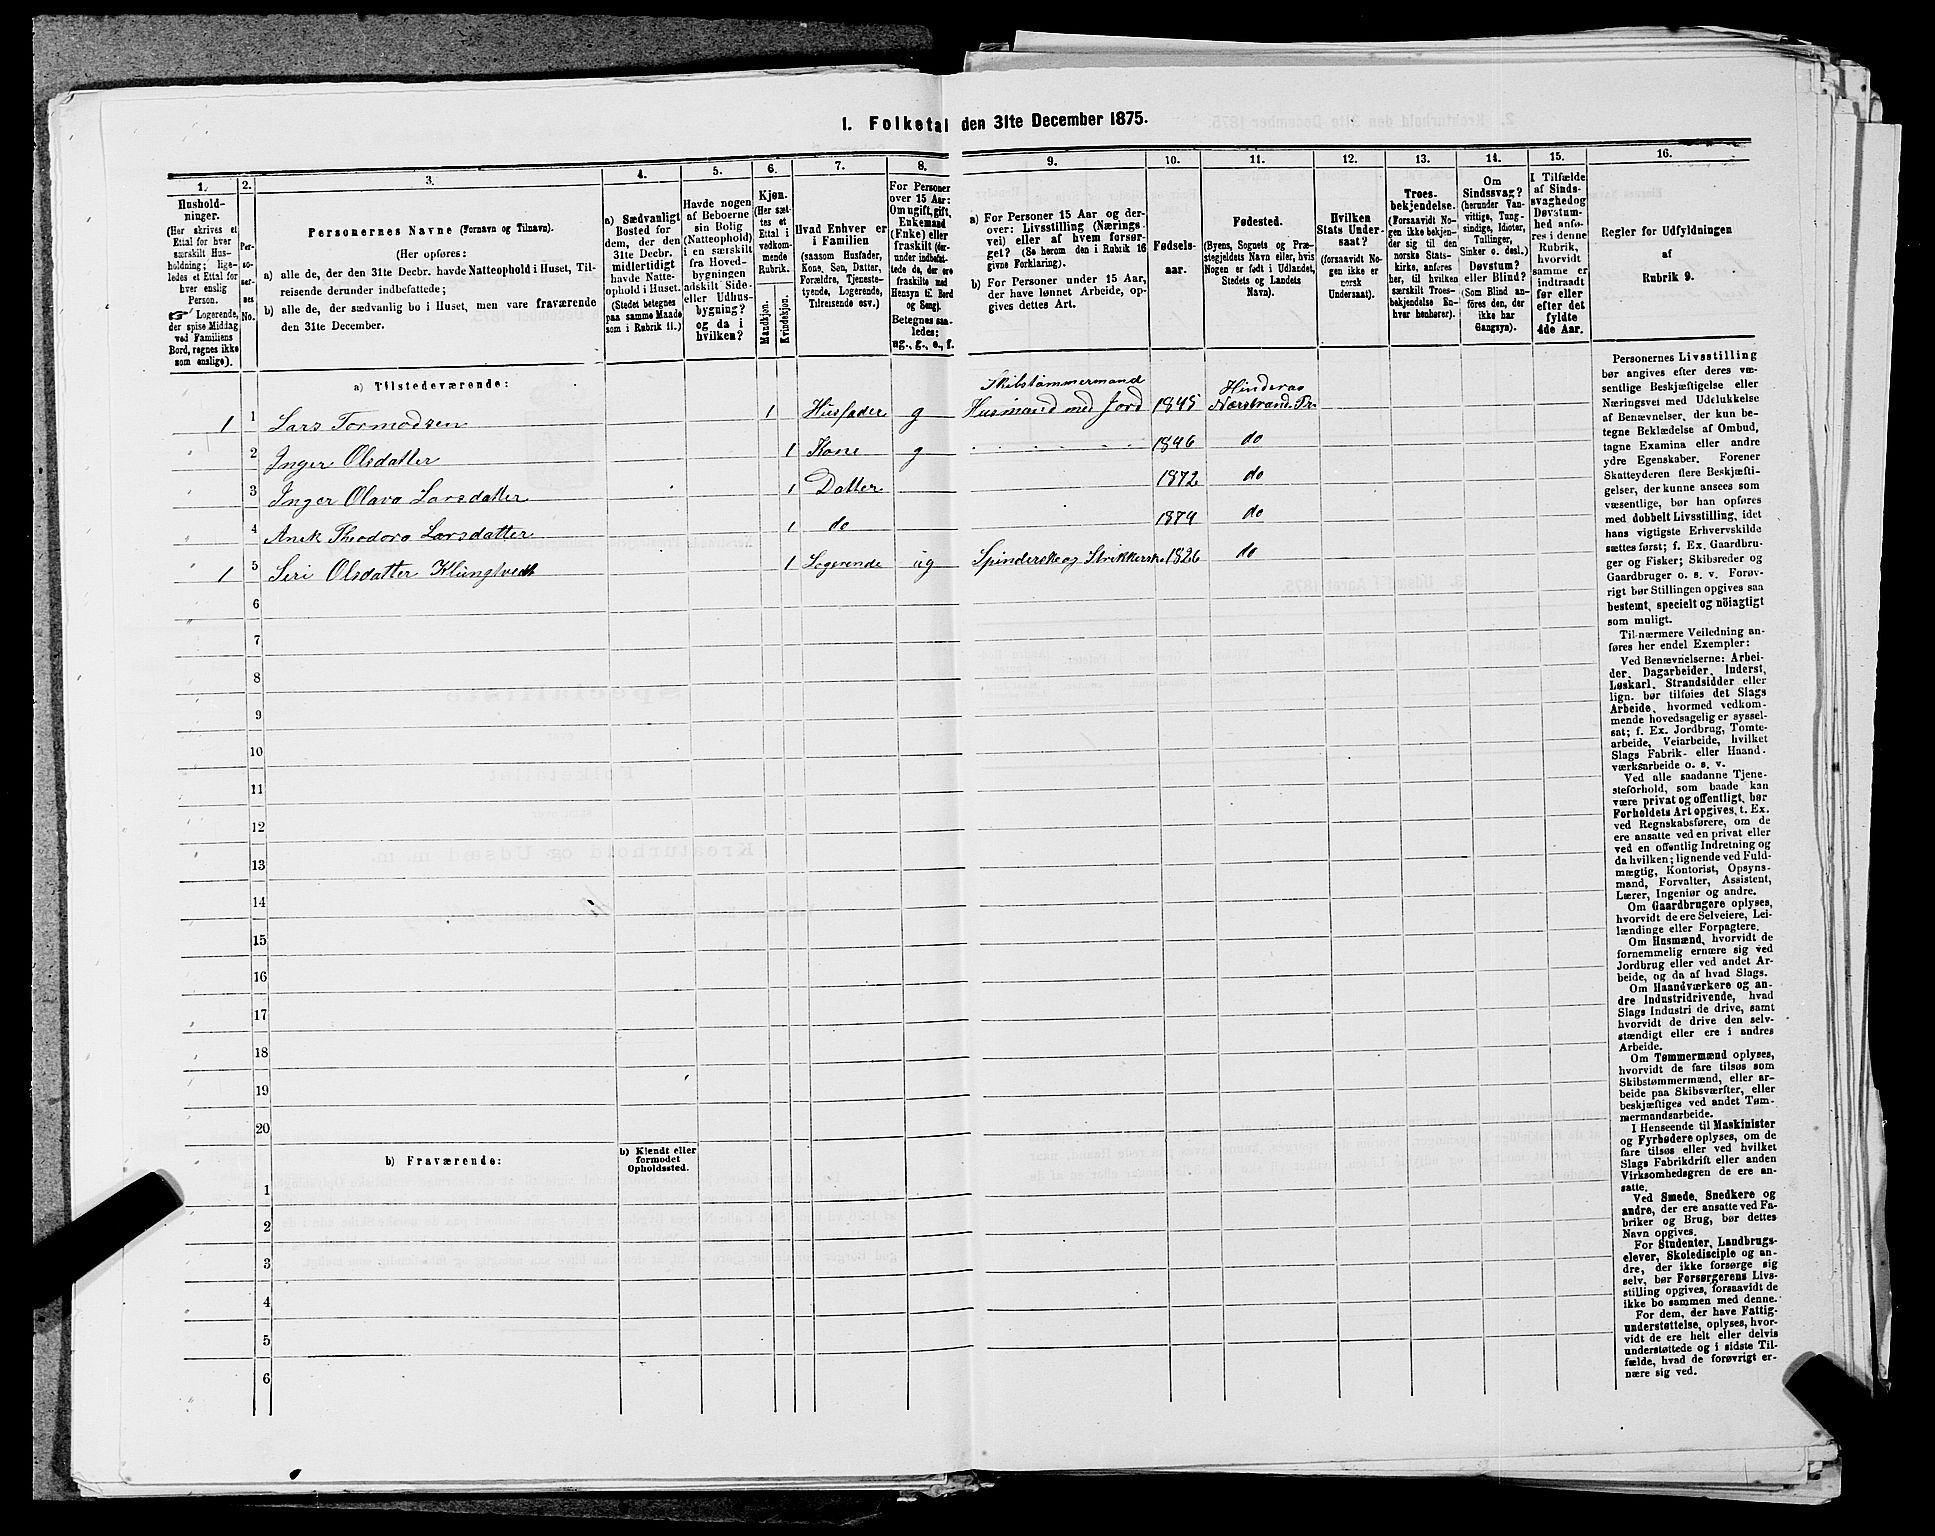 1. Folketal den 31te December 1875.
1.
2.
3.
4.
5.
6.
7.
8.
9.
10.
11.
12.
13.
14.
15.
16.
Hushold-
ninger.
(Her skrives et
Ettal for hver
særskilt Hus-
holdning; lige-
ledes et Ettal for
hver enslig
Person.
Logerende,
der spise Middag
ved Familiens
Bord, regnes ikke
som enslige).
Per-
so-
ner-
nes
No.
Personernes Navne (Fornavn og Tilnavn).
(Her opføres:
a) alle de, der den 31te Decbr. havde Natteophold i Huset, Til-
reisende derunder indbefattede;
b) alle de, der sædvanlig bo i Huset, men vare fraværende
den 31te December.
a) Sædvanligt
Bosted for
dem, der den
31te Decbr.
midlertidigt
havde Natte-
ophold i Huset.
(Stedet betegnes
paa samme Maade
som i Rubrik 11.)
Havde nogen
af Beboerne
sin Bolig
(Natteophold)
i en særskilt
fra Hoved-
bygningen
adskilt Side-
eller Udhus-
bygning?
og da i
hvilken?
Kjøn.
(Her sæt-
tes et
Ettal i
vedkom-
mende
Rubrik.
Mandkjøn.
Kvindekjøn.
Hvad Enhver er
i Familien
(saasom Husfader,
Kone, Søn, Datter,
Forældre, Tjeneste-
tyende, Logerende,
Tilreisende osv.)
For Personer
over 15 Aar:
Om ugift, gift,
Enkemand
(Enke) eller
fraskilt (her-
under indbefat-
tede de, der ere
fraskilte med
Hensyn til Bord
og Seng).
Betegnes saa-
ledes:
ug., g., e., f.
a) For Personer 15 Aar og der-
over: Livsstilling (Nærings-
vei) eller af hvem forsør-
get? (Se herom den i Rubrik 16
givne Forklaring).
b) For Personer under 15 Aar,
der have lønnet Arbeide, op-
gives dettes Art.
Fødsels-
aar.
Fødested.
(Byens, Sognets og Præ-
stegjeldets Navn eller, hvis
Nogen er født i Udlandet,
Stedets og Landets
Navn).
Hvilken
Stats Under-
saat?
(forsaavidt No-
gen ikke er
norsk
Undersaat).
Troes-
bekjendelse.
(Forsaavidt No-
gen ikke bekjen-
der sig til den
norske Stats-
kirke, anføres
her, til hvilken
særskilt Troes-
bekjendelse En-
hver henhører).
Om
Sindssvag?
(herunder Van-
vittige, Idioter,
Tullinger,
Sinker o. desl.)
Døvstum?
eller Blind?
(Som Blind an-
føres den, der
ikke har
Gangsyn).
I Tilfælde
af Sinds-
svaghed og
Døvstum-
hed anfø-
res i denne
Rubrik,
hvorvidt
samme er
indtraadt
før eller
efter det
fyldte
4de Aar.
Regler for Udfyldningen
af
Rubrik 9.
a) Tilstedeværende:
Skibstømmermand Hinderaa
1 1 Lars Tormodsen 1 Husfader g Husmand med Jord 1845 Nærstrand Pr.
2 Inger Olsdatter 1 Kone g 1846 do
3 Inger Olava Larsdatter 1 Datter 1872 do
4 Anek Theodora Larsdatter 1 do 1874 do
1 5 Seri Olsdatter Klungtvedt 1 Logerende ug Spinderske og Strikkerske 1826 do
6
7
8
9
10
11
12
13
14
15
16
17
18
19
20
b) Fraværende:
b) Kjendt eller
formodet
Opholdssted.
1
2
3
4
5
6
Personernes Livsstilling
bør angives efter deres væ-
sentlige Beskjæftigelse eller
Næringsvei med Udelukkelse
af Benævnelser, der kun be-
tegne Beklædelse af Ombud,
tagne Examina eller andre
ydre Egenskaber. Forener
Skatteyderen flere Beskjæfti-
gelser, der kunne ansees som
væsentlige, bør han opføres
med dobbelt Livsstilling, idet
hans vigtigste Erhvervskilde
sættes først; f. Ex. Gaardbru-
ger og Fisker; Skibsreder og
Gaardbruger o. s. v. Forøv-
rigt bør Stillingen opgives saa
bestemt, specielt og nöiagtigt
som muligt.
Til nærmere Veiledning an-
føres her endel Exempler:
Ved Benævnelserne: Arbei-
der, Dagarbeider, Inderst,
Løskarl, Strandsidder eller
lign. bør tilføies det Slags
Arbeide, hvormed vedkom-
mende hovedsagelig er syssel-
sat; f. Ex. Jordbrug, Tomte-
arbeide, Veiarbeide, hvilket
Slags Fabrik- eller Haand-
værksarbeide o. s. v.
Ved alle saadanne Tjene-
steforhold, som baade kan
være privat og offentligt, bør
Forholdets Art opgives, t. Ex.
ved Regnskabsførere, om de
ere ansatte ved en privat eller
ved en offentlig Indretning og
da hvilken; lignende ved Fuld-
mægtig, Kontorist, Opsyns-
mand, Forvalter, Assistent,
Lærer, Ingeniør og andre.
Om Gaardbrugere oplyses,
hvorvidt de ere Selveiere, Lei-
lændinge eller Forpagtere.
Om Husmænd, hvorvidt de
fornemmelig ernære sig ved
Jordbrug eller ved andet Ar-
beide, og da af hvad Slags.
Om Haandværkere og an-
dre Industridrivende, hvad
Slags Industri de drive, samt
hvorvidt de drive den selv-
stændigt eller ere i andres
Arbeide.
Om Tømmermænd oplyses,
hvorvidt de fare tilsøs som
Skibstømmermænd, eller ar-
beide paa Skibsværfter, eller
beskjæftiges ved andet Tøm-
mermandsarbeide.
I Henseende til Maskinister
og Fyrbødere oplyses, om de
fare tilsøs eller ved hvilket
Slags Fabrikdrift eller anden
Virksomhedsgren de ere an-
satte.
Ved Smede, Snedkere og
andre, der ere ansatte ved Fa-
briker og Brug, bør dettes
Navn opgives.
For Studenter, Landbrugs-
elever, Skoledisciple og an-
dre, der ikke forsørge sig
selv, bør Forsørgerens Livs-
stilling opgives, forsaavidt de
ikke bo sammen med denne.
For dem, der have Fattig-
understøttelse, oplyses, hvor-
vidt de ere helt eller delvis
understøttede og i sidste Til-
fælde, hvad de forøvrigt er-
nære sig ved.